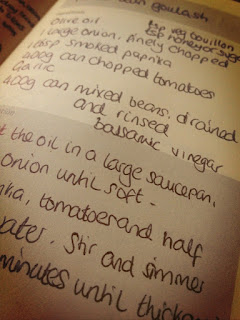 goulash
Olive oil tsp veg bouillon
1 large onion, finely chopped
1 tbsp smoked paprika
400g can chopped tomatoes
Garlic
400g can mixed beans, drained
and rinsed
Balsamic vinegar
the oil in a large saucepan.
onion until soft -
tomatoes and half
Stir and simmer
minutes until